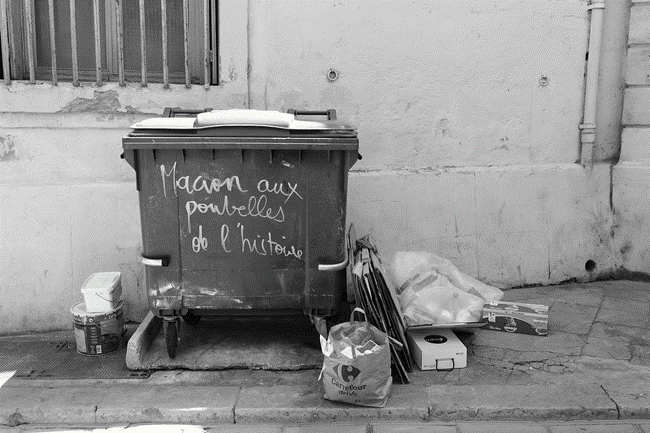 Macron aux
poubelles
de l'histoire
Carrefour
drive